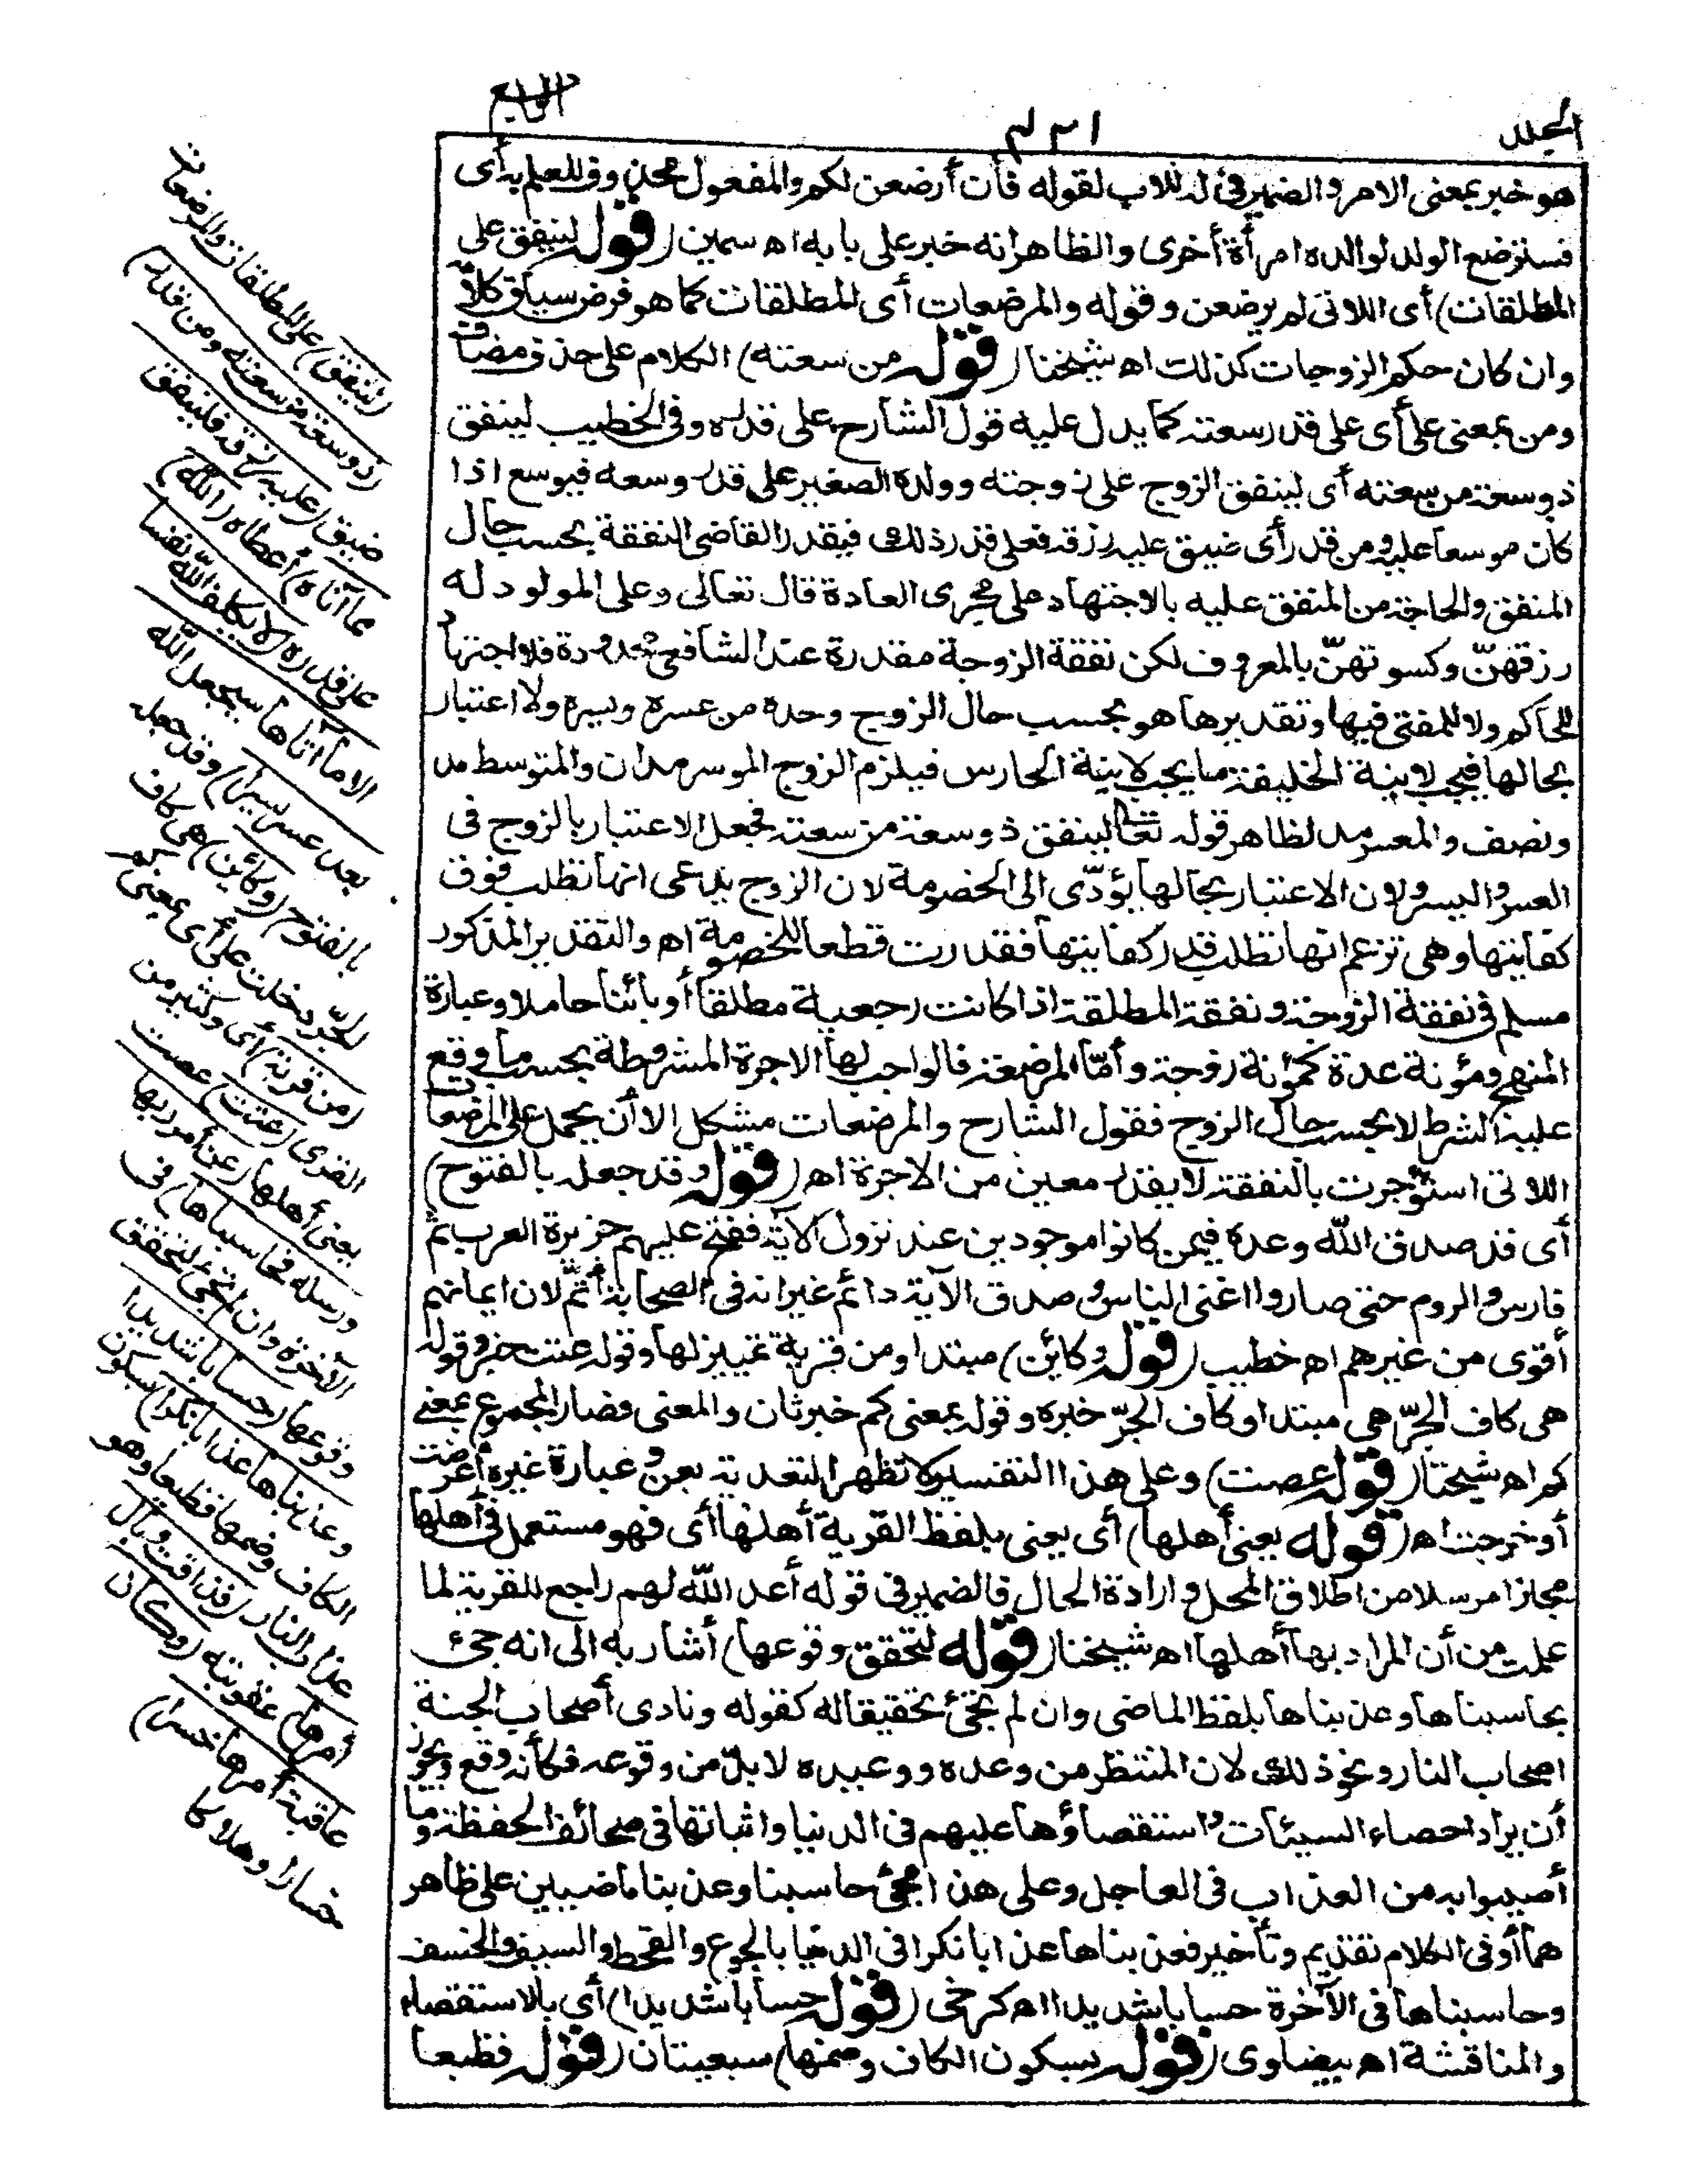 الجلد
٤٣١
الرابع
هو خبر بمعنى الامر والضمير في له للاب لقوله فأن أرضعن لكم والمفعول محذوف للعلم به أى
فسترضع الولد لوالده امرأة أخرى والظاهر انه خبر على بابه اه سمين (قوله لينفق على
المطلقات) أى اللاتى لم يرضعن وقوله والمرضعات أى المطلقات كما هو فرض سياق كلامه
وان كان حكم الزوجات كذلك اه شيخنا (قوله من سعته) الكلام على حذف مضاف
ومن بمعنى على أى على قدر سعته كما يدل عليه قول الشارح على قدره وفى الخطيب لينفق
ذو سعة من سعته أى لينفق الزوج على زوجته وولده الصغير على قدر وسعه فيوسع اذا
كان موسعا عليه ومن قدر أى ضيق عليه رزقه فعلى قدر ذلك فيقدر القاضى النفقة بحسب حال
المنفق والحاجة من المنفق عليه بالاجتهاد على مجرى العادة قال تعالى وعلى المولود له
رزقهنّ وكسوتهنّ بالمعروف لكن نفقة الزوجة مقدرة عند الشافعى محدودة فلا اجتهاد
للحاكم ولا للمفتى فيها وتقديرها هو بحسب حال الزوج وحده من عسره ويسره ولا اعتبار
بحالها فيجب لابنة الخليفة ما يجب لابنة الحارس فيلزم الزوج الموسر مدان والمتوسط مد
ونصف والمعسر مد لظاهر قوله تعالى لينفق ذو سعة من سعته فجعل الاعتبار بالزوج فى
العسر واليسر ولان الاعتبار بحالها يؤدّى الى الخصومة لان الزوج يدعى انها تطلب فوق
كفايتها وهى تزعم انها تطلب قدر كفايتها فقدرت قطعا للخصومة اه والتقدير المذكور
مسلم فى نفقة الزوجة ونفقة المطلقة اذا كانت رجعية مطلقا أو بائنا حاملا وعبارة
المنهج ومؤنة عدة كمؤنة زوجة وأمّا المرضعة فالواجب لها الاجرة المشروطة بحسب ما وقع
عليه الشرط لا بحسب حال الزوج فقول الشارح والمرضعات مشكل الا أن يحمل على المرضعات
اللاتى استؤجرت بالنفقة لا بقدر معين من الاجرة اه (قوله وقد جعله بالفتوح)
أى قد صدق الله وعده فيمن كانوا موجودين عند نزول الآية ففتح عليهم جزيرة العرب ثم
فارس والروم حتى صاروا اغنى الناس وصدق الآية دائم غير انه فى الصحابة أتمّ لان ايمانهم
أقوى من غيرهم اه خطيب (قوله وكائن) مبتدا ومن قرية تمييز لها وقوله عتت خبر وقوله
هى كاف الجرّ هى مبتدا وكاف الجرّ خبره وقوله بمعنى كم خبر ثان والمعنى فصار المجموع بمعنى
كم اه شيخنا (قوله عصت) وعلى هذا التفسير لا تظهر التعدية بعن وعبارة غيره أعرضت
أو خرجت اه (قوله يعنى أهلها) أى يعنى بلفظ القرية أهلها أى فهو مستعمل فى أهلها
مجازا مرسلا من اطلاق المحل وارادة الحال فالضمير فى قوله أعد الله لهم راجع للقرية لما
علمت من أن المراد بها أهلها اه شيخنا (قوله لتحقق وقوعها) أشار به الى انه جئ
بحاسبناها وعذبناها بلفظ الماضى وان لم تجئ تحقيقا له كقوله ونادى أصحاب الجنة
اصحاب النار ونحو ذلك لان المنتظر من وعده ووعيده لا بدّ من وقوعه فكأنه وقع ويجوز
أن يراد احصاء السيئات واستقصاؤها عليهم فى الدنيا واثباتها فى صحائف الحفظة وما
أصيبوا به من العذاب فى العاجل وعلى هذا مجئ حاسبنا وعذبنا ماضيين على ظاهر
هما أو فى الكلام تقديم وتأخير فعذبناها عذابا نكرا فى الدنيا بالجوع والقحط والسيف والخسف
وحاسبناها فى الآخرة حسابا شديدا اه كرخى (قوله حسابا شديدا) أى بالاستقصاء
والمناقشة اه بيضاوى (قوله بسكون الكاف وضمها) سبعيتان (قوله فظيعا
(لينفق) على المطلقات والمرضعات
(ذو سعة من سعته ومن قدر)
ضيق (عليه رزقه فلينفق
مما آتاه) أعطاه (الله)
على قدره (لا يكلف الله نفسا
الا ما آتاها سيجعل الله
بعد عسر يسرا) وقد جعله
بالفتوح (وكائن) هى كاف
الجرّ دخلت على أى بمعنى كم
(من قرية) أى وكثير من
القرى (عتت) عصت
يعنى أهلها (عن أمر ربها
ورسله فحاسبناها) فى
الآخرة وان لم تجئ لتحقق
وقوعها (حسابا شديدا
وعذبناها عذابا نكرا) بسكون
الكاف وضمها فظيعا وهو
عذاب النار (فذاقت وبال
أمرها) عقوبته (وكان
عاقبة أمرها خسرا)
خسارا وهلاكا